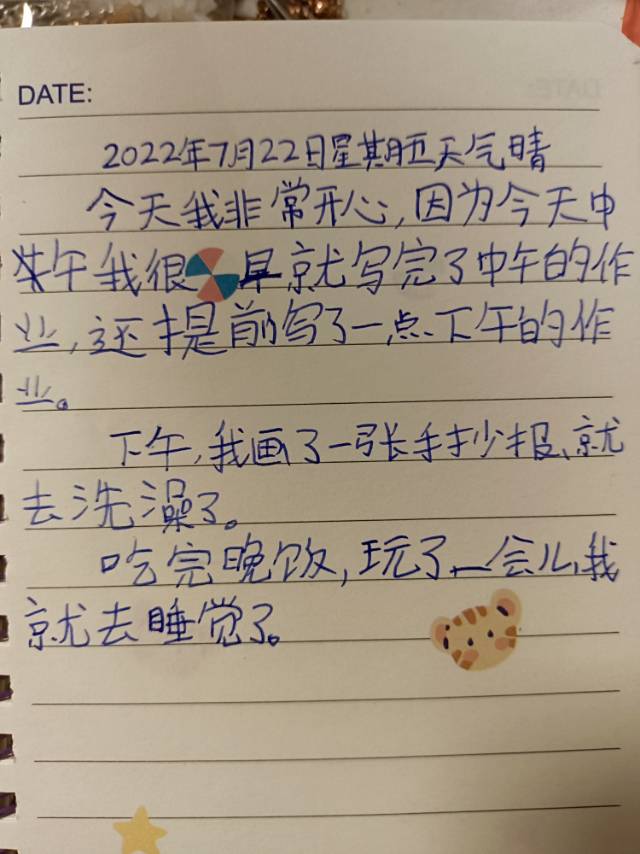 DATE:
2022年7月22日星期五天气晴
今天我非常开心,因为今天中
午我很早就写完了中午的作
业,还提前写了一点下午的作
业。
下午,我画了一张手抄报、就
去洗澡了。
吃完晚饭,玩了一会儿我
就去睡觉了。